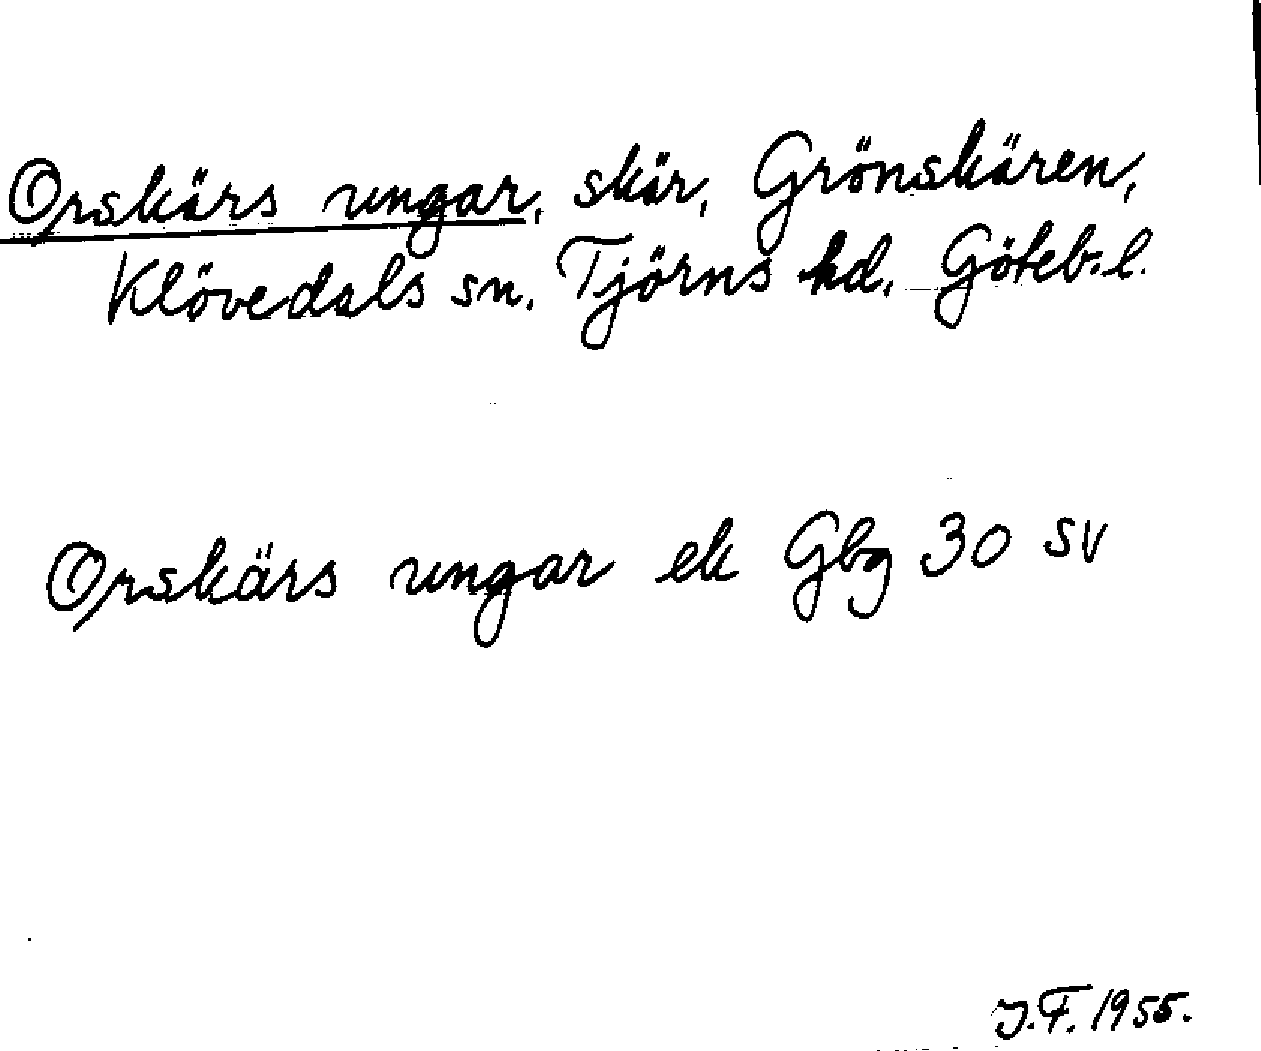 Orskärs ungar, skär, Grönskären,
Klövedals sn, Tjörns hd, Göteb. l.
Orskärs ungar ek Gbg 30 SV
J.F. 1955.